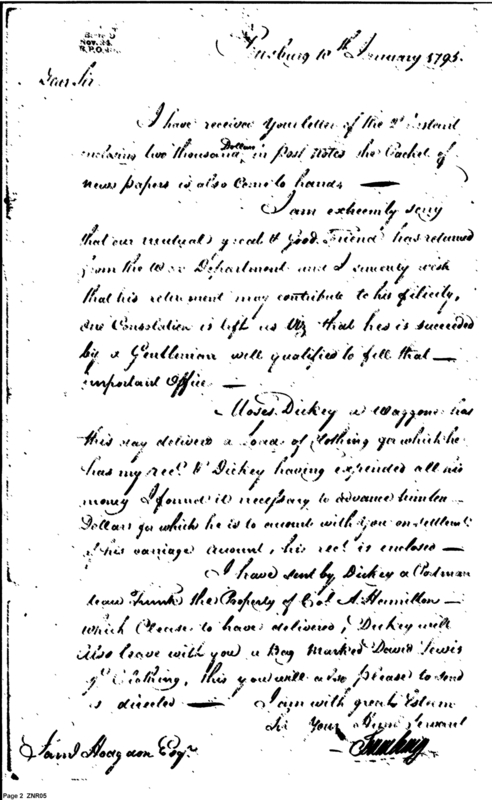 Nov. 24
R.P.O.
Pittsburg 10th January 1795.
Dear Sir
I have received Your letter of the 2d instant
enclosing two thousand Dollars in post notes the Packet of
news papers is also Come to hand —
I am extreemly sorry
that our mutual great & Good Friend has retired
from the War Department and I sincerely wish
that his retirement may contribute to his felicity,
one Consolation is left us Viz that he is succeeded
by a Gentleman well qualified to fill that —
important Office —
Moses Dickey a Waggoner has
this day delivered a Load of Clothing for which he
has my rect. Dickey having expended all his
money I found it necessary to advance him ten
Dollars for which he is to account with you on settlement
of his carriage account, his rect. is enclosed —
I have sent by Dickey a
Trunk the Property of Col. A. Hamilton —
which Please to have delivered, Dickey will
also leave with you a Bag Marked David Lewis
of Clothing, this you will also please to send
as directed — I am with great Esteem
Sir Your Hume Servant
Saml Hodgdon Esqr.
Page 2 ZNR05